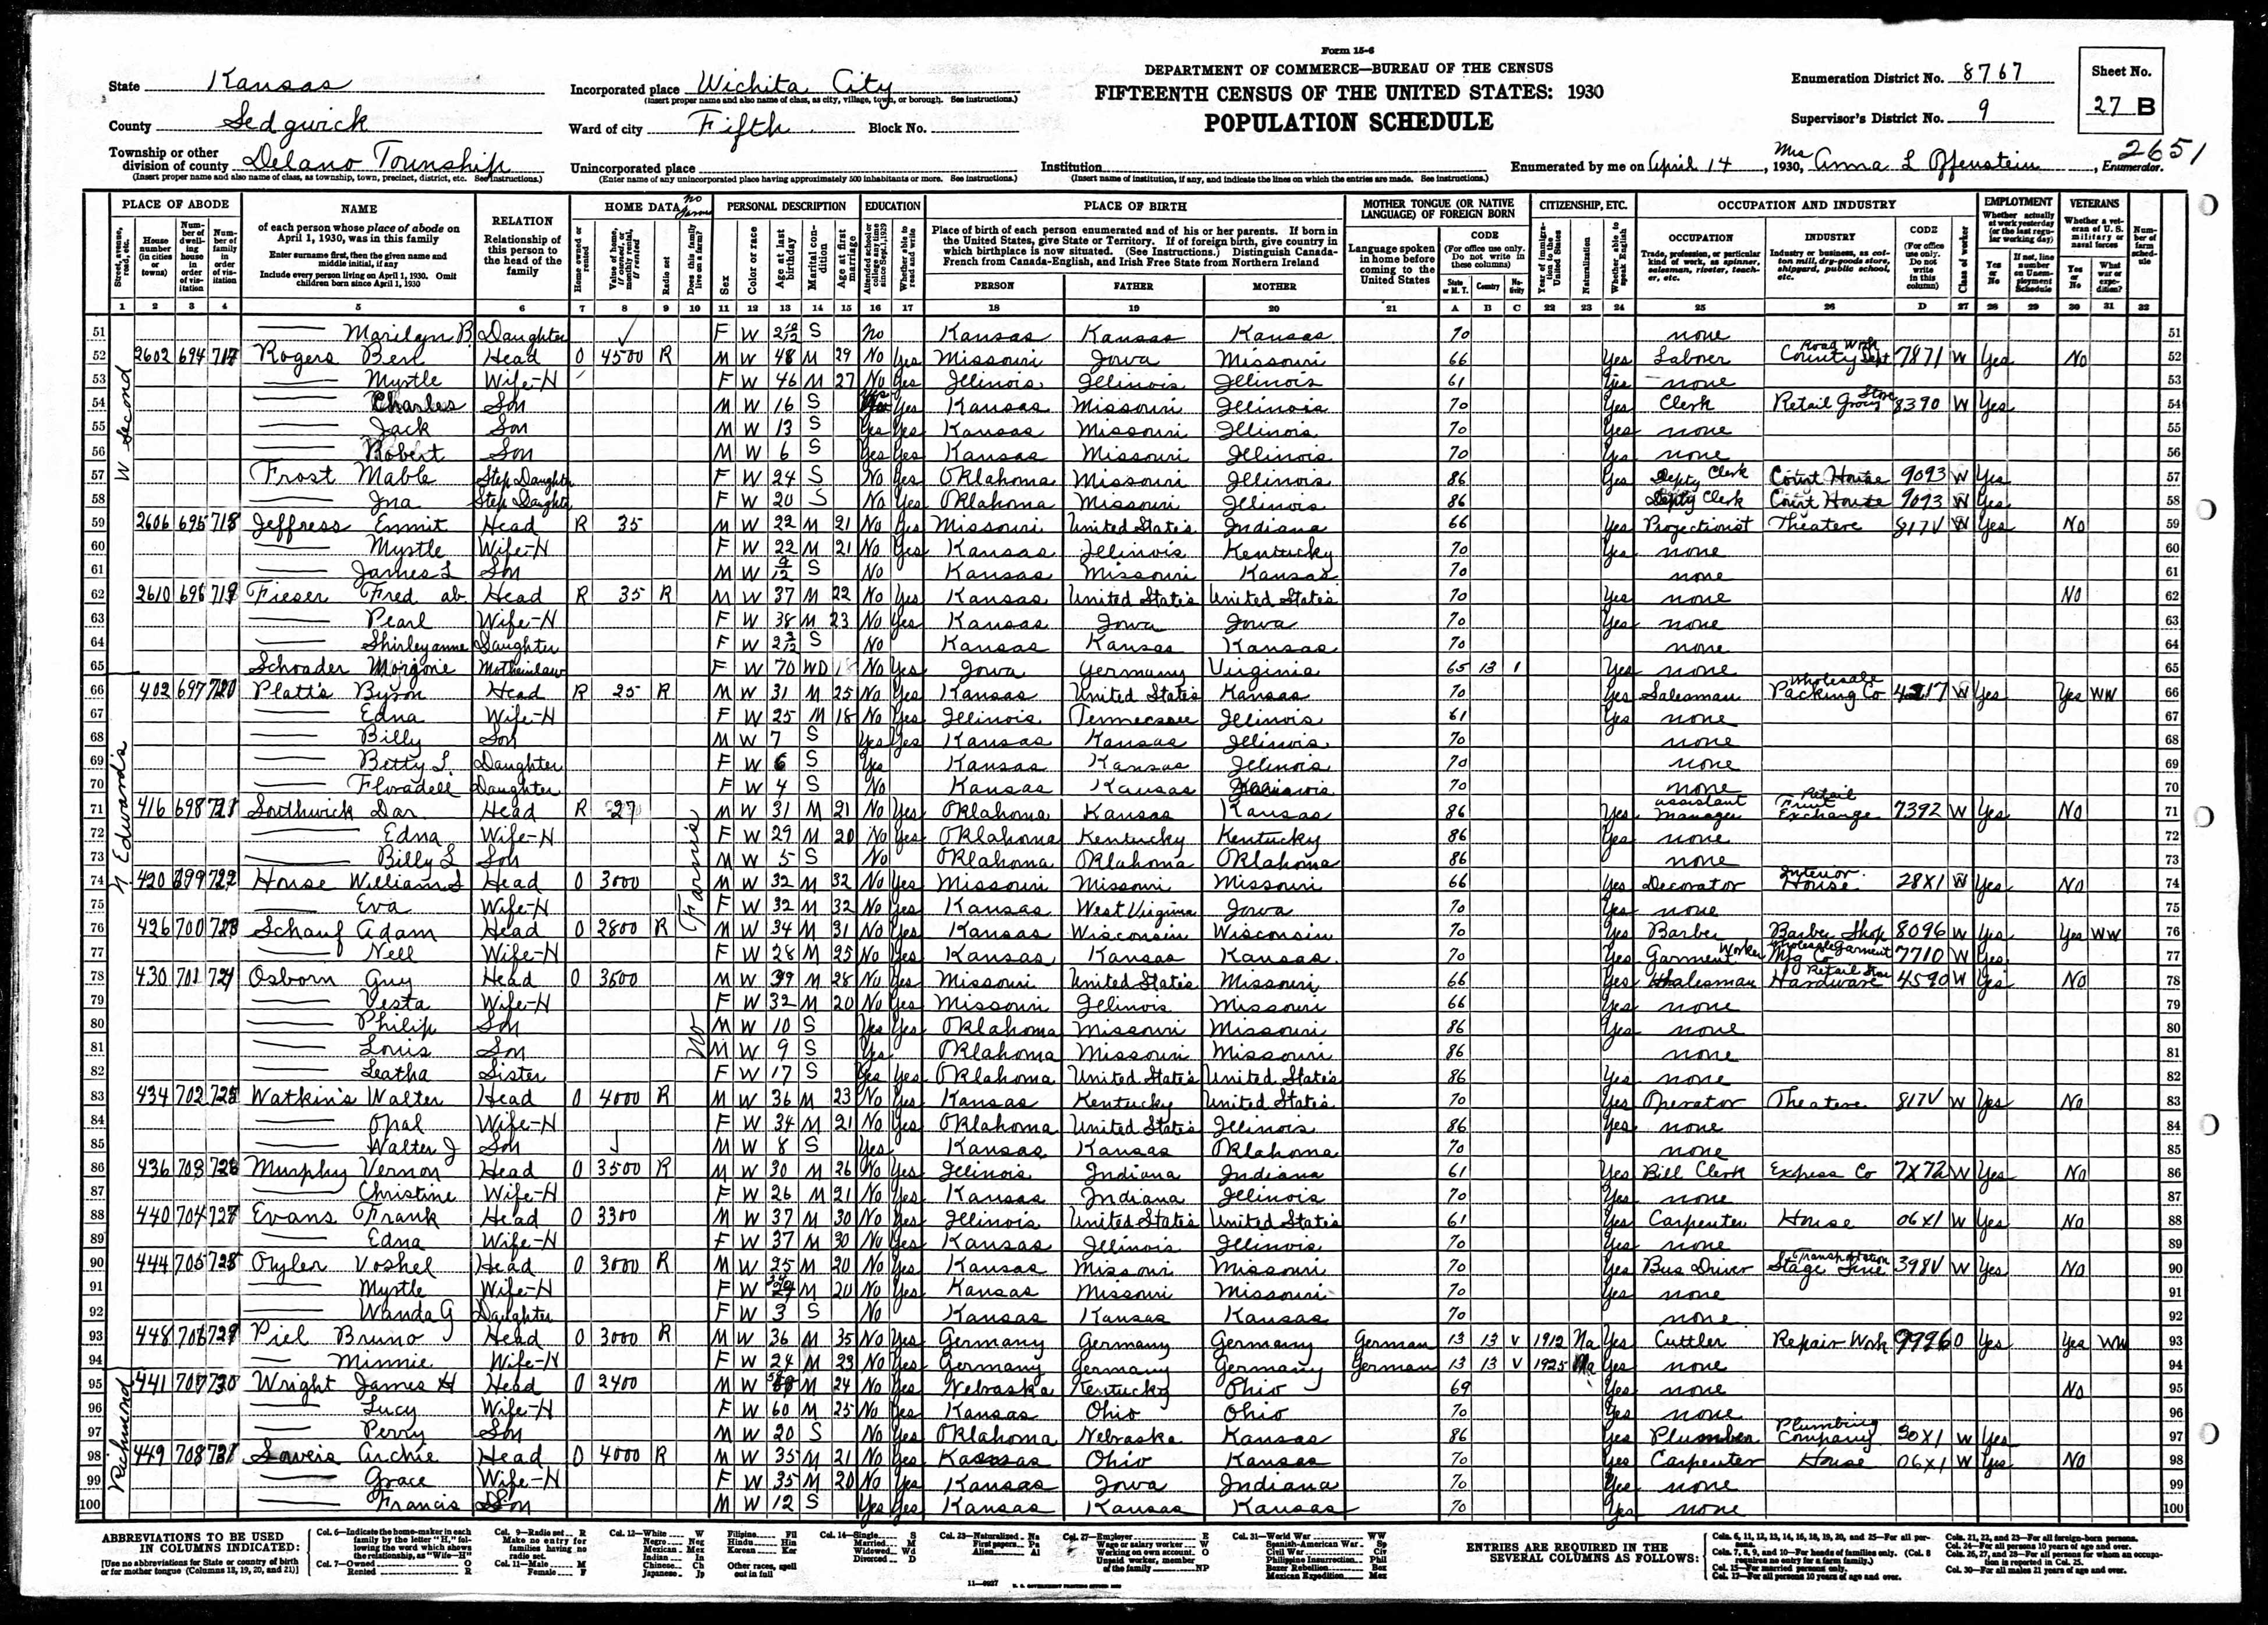 Form 15-6
DEPARTMENT OF COMMERCE—BUREAU OF THE CENSUS
FIFTEENTH CENSUS OF THE UNITED STATES: 1930
POPULATION SCHEDULE
State Kansas
County Sedgwick
Township or other division of county Delano Township
(Insert proper name and also name of class, as township, town, precinct, district, etc. See instructions.)
Incorporated place Wichita City
(Insert proper name and also name of class, as city, village, town, or borough. See instructions.)
Ward of city Fifth Block No.
Unincorporated place
(Enter name of any unincorporated place having approximately 500 inhabitants or more. See instructions.)
Institution
(Insert name of institution, if any, and indicate the lines on which the entries are made. See instructions.)
Enumeration District No. 8767
Supervisor's District No. 9
Sheet No. 27 B
2651
Enumerated by me on April 14, 1930, Mrs Anna L Offenstein, Enumerator.
PLACE OF ABODE NAME RELATION HOME DATA PERSONAL DESCRIPTION EDUCATION PLACE OF BIRTH MOTHER TONGUE (OR NATIVE LANGUAGE) OF FOREIGN BORN CITIZENSHIP, ETC. OCCUPATION AND INDUSTRY EMPLOYMENT VETERANS
PERSON FATHER MOTHER
1 2 3 4 5 6 7 8 9 10 11 12 13 14 15 16 17 18 19 20 21 A B C 22 23 24 25 26 D 27 28 29 30 31 32
W Second
51 Marilyn B Daughter F W 2 10/12 S No Kansas Kansas Kansas 70 none 51
52 2602 694 717 Rogers Ben Head O 4500 R M W 48 M 29 No Yes Missouri Iowa Missouri 66 Yes Laborer Road Work County Dept 7871 W Yes No 52
53 Myrtle Wife-H F W 46 M 27 No Yes Illinois Illinois Illinois 61 Yes none 53
54 Charles Son M W 16 S Yes Yes Kansas Missouri Illinois 70 Yes Clerk Retail Grocy Store 8390 W Yes 54
55 Jack Son M W 13 S Yes Yes Kansas Missouri Illinois 70 Yes none 55
56 Robert Son M W 6 S Yes Yes Kansas Missouri Illinois 70 Yes none 56
57 Frost Mable Step Daughter F W 24 S No Yes Oklahoma Missouri Illinois 86 Yes Depty Clerk Court House 9093 W Yes 57
58 Ina Step Daughter F W 20 S No Yes Oklahoma Missouri Illinois 86 Depty Clerk Court House 9093 W Yes 58
59 2606 695 718 Jeffress Emmit Head R 35 M W 22 M 21 No Yes Missouri United States Indiana 66 Yes Projectionist Theatere 817V W Yes No 59
60 Myrtle Wife-H F W 22 M 21 No Yes Kansas Illinois Kentucky 70 Yes none 60
61 James L Son M W 9/12 S No Kansas Missouri Kansas 70 none 61
62 2610 696 719 Fieser Fred ab Head R 35 R M W 37 M 22 No Yes Kansas United States United States 70 Yes none No 62
63 Pearl Wife-H F W 38 M 23 No Yes Kansas Iowa Iowa 70 Yes none 63
64 Shirleyanne Daughter F W 2 3/12 S No Kansas Kansas Kansas 70 none 64
65 Schrader Motherinlaw F W 70 WD 18 No Yes Iowa Germany Virginia 65 13 1 Yes none 65
N Edwards
66 402 697 720 Platts Byron Head R 25 R M W 31 M 25 No Yes Kansas United States Kansas 70 Yes Salesman Wholesale Packing Co 4217 W Yes Yes WW 66
67 Edna Wife-H F W 25 M 18 No Yes Illinois Tennessee Illinois 61 Yes none 67
68 Billy Son M W 7 S Yes Yes Kansas Kansas Illinois 70 none 68
69 Betty L. Daughter F W 6 S Yes Kansas Kansas Illinois 70 none 69
70 Floradell Daughter F W 4 S No Kansas Kansas 70 none 70
71 416 698 721 Southwick Dan Head R 27 M W 31 M 21 No Yes Oklahoma Kansas Kansas 86 Yes assistant manager Retail Fruit Exchange 7392 W Yes No 71
72 Edna Wife-H F W 29 M 20 No Yes Oklahoma Kentucky Kentucky 86 Yes none 72
73 Billy L Son M W 5 S No Oklahoma Oklahoma Oklahoma 86 none 73
74 420 699 722 House William S Head O 3000 M W 32 M 32 No Yes Missouri Missouri Missouri 66 Yes Decorator Interior House 28X1 W Yes No 74
75 Eva Wife-H F W 32 M 32 No Yes Kansas West Virginia Iowa 70 Yes none 75
76 426 700 723 Schauf Adam Head O 2800 R M W 34 M 31 No Yes Kansas Wisconsin Wisconsin 70 Yes Barber Barber Shop 8096 W Yes Yes WW 76
77 Nell Wife-H F W 28 M 25 No Yes Kansas Kansas Kansas 70 Yes Garment Worker Wholesale Garment Mfg Co 7710 W Yes 77
78 430 701 724 Osborn Guy Head O 3500 M W 39 M 28 No Yes Missouri United States Missouri 66 Yes Salesman Retail Store Hardware 4590 W Yes No 78
79 Vesta Wife-H F W 32 M 20 No Yes Missouri Illinois Missouri 66 Yes none 79
80 Philip Son M W 10 S Yes Yes Oklahoma Missouri Missouri 86 Yes none 80
81 Louis Son M W 9 S Yes Oklahoma Missouri Missouri 86 none 81
82 Leatha Sister F W 17 S Yes Yes Oklahoma United States United States 86 Yes none 82
83 434 702 725 Watkins Walter Head O 4000 R M W 36 M 23 No Yes Kansas Kentucky United States 70 Yes Operator Theatere 817V W Yes No 83
84 Opal Wife-H F W 34 M 21 No Yes Oklahoma United States Illinois 86 Yes none 84
85 Walter J Son M W 8 S Yes Kansas Kansas Oklahoma 70 none 85
86 436 703 726 Murphy Vernon Head O 3500 R M W 30 M 26 No Yes Illinois Indiana Indiana 61 Yes Bill Clerk Express Co 7X72 W Yes No 86
87 Christine Wife-H F W 26 M 21 No Yes Kansas Indiana Illinois 70 Yes none 87
88 440 704 727 Evans Frank Head O 3300 M W 37 M 30 No Yes Illinois United States United States 61 Yes Carpenter House 06X1 W Yes No 88
89 Edna Wife-H F W 37 M 30 No Yes Kansas Illinois Illinois 70 Yes none 89
90 444 705 728 Oyler Voshel Head O 3000 R M W 25 M 20 No Yes Kansas Missouri Missouri 70 Yes Bus Driver Transportation Stage Line 398V W Yes No 90
91 Myrtle Wife-H F W M 20 No Yes Kansas Missouri Missouri 70 Yes none 91
92 Wanda G Daughter F W 3 S No Kansas Kansas Kansas 70 none 92
93 448 706 729 Piel Bruno Head O 3000 R M W 36 M 35 No Yes Germany Germany Germany German 13 13 V 1912 Na Yes Cuttler Repair Work 9996 O Yes Yes WW 93
94 Minnie Wife-H F W 24 M 23 No Yes Germany Germany Germany German 13 13 V 1925 Na Yes none 94
Richmond
95 441 707 730 Wright James H Head O 2400 M W M 24 No Yes Nebraska Kentucky Ohio 69 Yes none No 95
96 Lucy Wife-H F W 60 M 25 No Yes Kansas Ohio Ohio 70 Yes none 96
97 Perry Son M W 20 S No Yes Oklahoma Nebraska Kansas 86 Yes Plumber Plumbing Company 30X1 W Yes 97
98 449 708 731 Archie Head O 4000 R M W 35 M 21 No Yes Kansas Ohio Kansas 70 Yes Carpenter House 06X1 W Yes No 98
99 Grace Wife-H F W 35 M 20 No Yes Kansas Iowa Indiana 70 Yes none 99
100 Francis Son M W 12 S Yes Yes Kansas Kansas Kansas 70 Yes none 100
ABBREVIATIONS TO BE USED IN COLUMNS INDICATED:
[Use no abbreviations for State or country of birth or for mother tongue (Columns 18, 19, 20, and 21)]
ENTRIES ARE REQUIRED IN THE SEVERAL COLUMNS AS FOLLOWS: